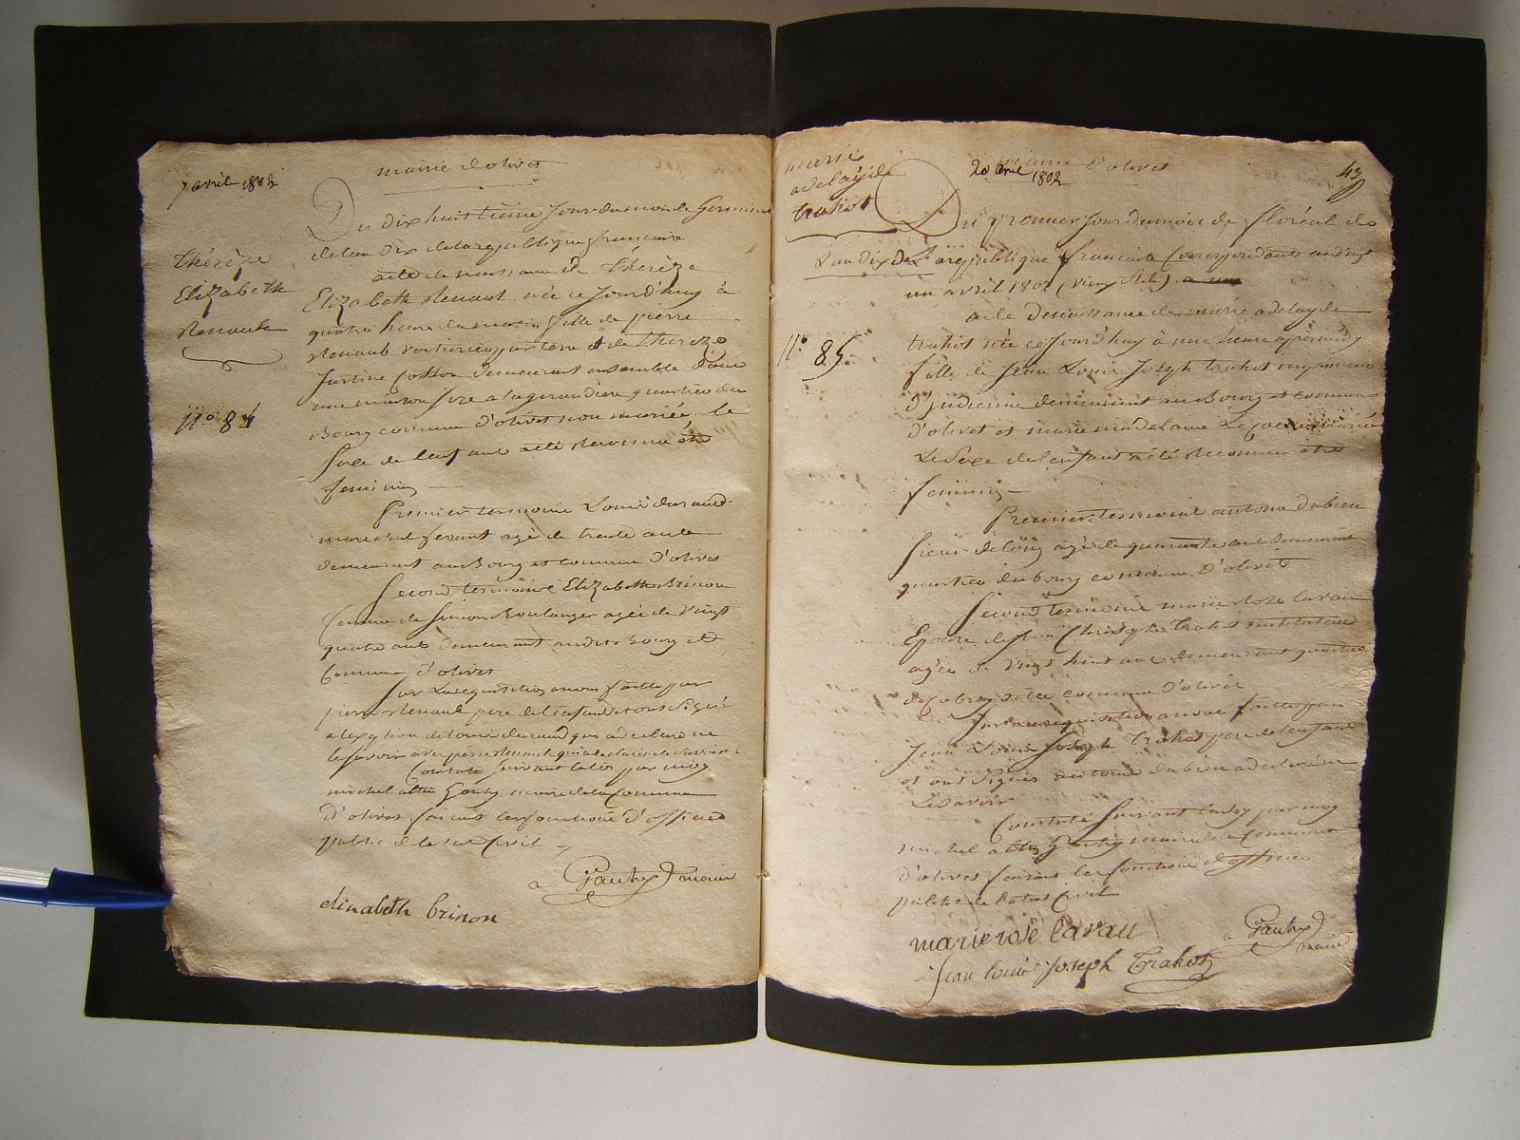 7 avril 1802
mairie d'olivet
Du dix huitième jour du mois de Germinal
de l'an dix de la republique francaise
acte de naissance de Thérèze
Elizabeth Renault née ce jourd'huy à
quatre heure du matin fille de pierre
Renault et de Thereze
Justine Cotton demeurant ensemble dans
une maison size a la quartier du
Bourg commune d'olivet non mariée le
sexe de l'enfant a été reconnu être
feminin
Thérèze
Elizabeth
Renault
N° 84
Premier temoin Louis durand
marechal ferant agé de trente ans
demeurant au Bourg et commune d'olivet
Second temoine Elizabeth Brinon
femme de Simon Boulanger agée de vingt
quatre ans demeurant audit Bourg et
Commune d'olivet
Sur La requisition a nous faitte par
pierre Renault pere de l'enfant et ont Signé
a l'exception de Louis durand qui a declaré ne
le savoir
Constaté suivant la loy par moy
michel Gautry maire de la Commune
d'olivet faisant les fonctions d'officier
public de l'etat Civil
Gautry maire
elisabeth brinon
marie
adelayde
trahot
20 avril 1802
mairie d'olivet
43
Du premier jour du mois de floréal de
L'an dix de La republique francaise Correspondant au vingt
un avril 1802 (vieux stile)
acte de naissance de marie adelayde
trahot née ce jourd'huy à une heure
fille de Jean Louis Joseph trahot
demeurant au Bourg et commune
d'olivet et marie madelaine
Le Sexe de l'enfant a été reconnu être
feminin
N° 85
Premier temoin antoine dubien
agé de quarante ans demeurant
quartier du bourg commune d'olivet
Second temoine marie Roze lavau
Epouse de trahot instituteur
agée de vingt huit ans demeurant quartier
commune d'olivet
Sur la requisition a nous faitte par
Jean Louis Joseph trahot pere de l'enfant
et ont Signés antoine dubien a declaré ne
Le Savoir
Constaté suivant la loy par moy
michel Gautry maire de la Commune
d'olivet faisant les fonctions d'officier
public de l'etat Civil
marie rose lavau
Gautry
maire
jean louis joseph Trahot